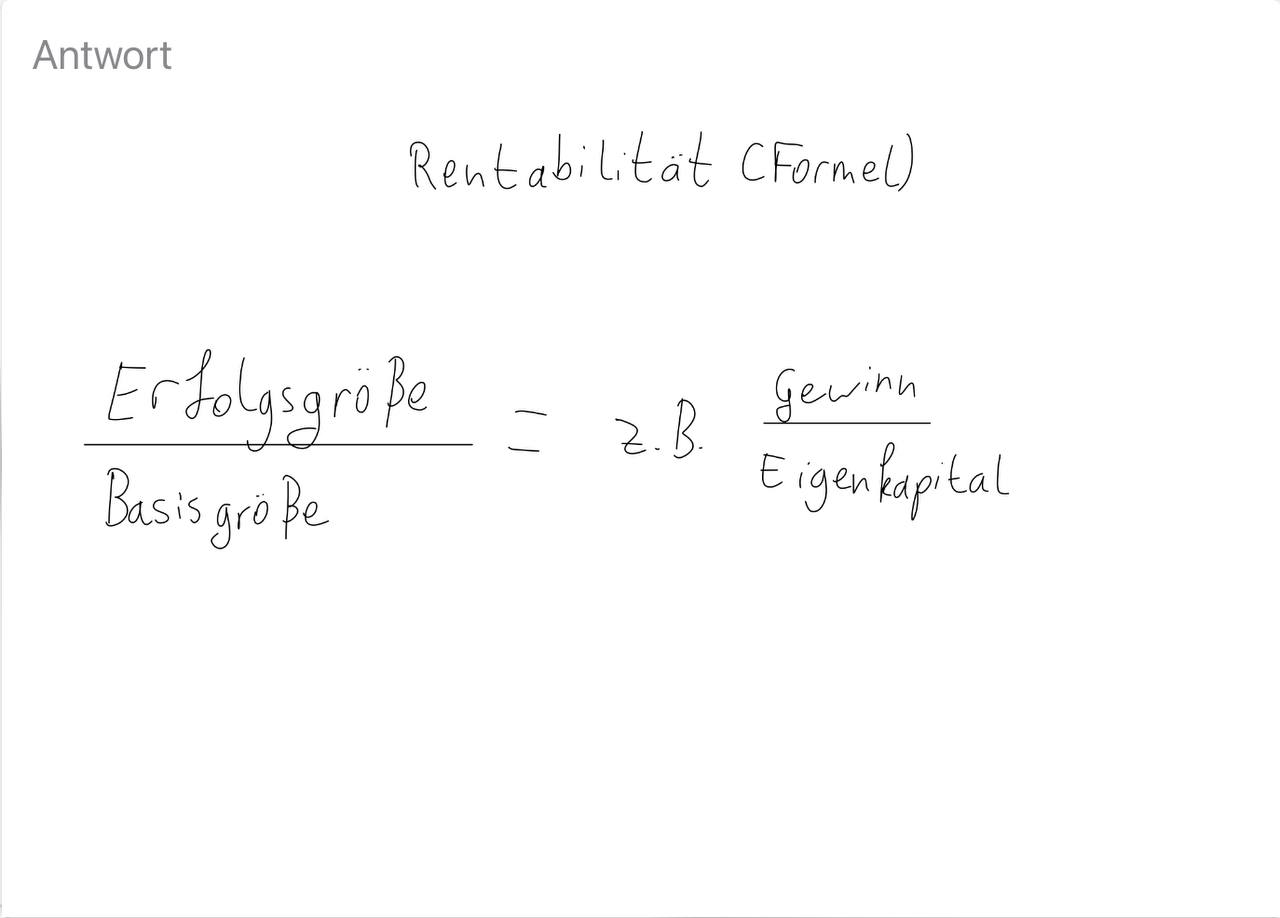 Antwort
Rentabilität (Formel)
Erfolgsgröße
Basisgröße
= z.B.
Gewinn
Eigenkapital